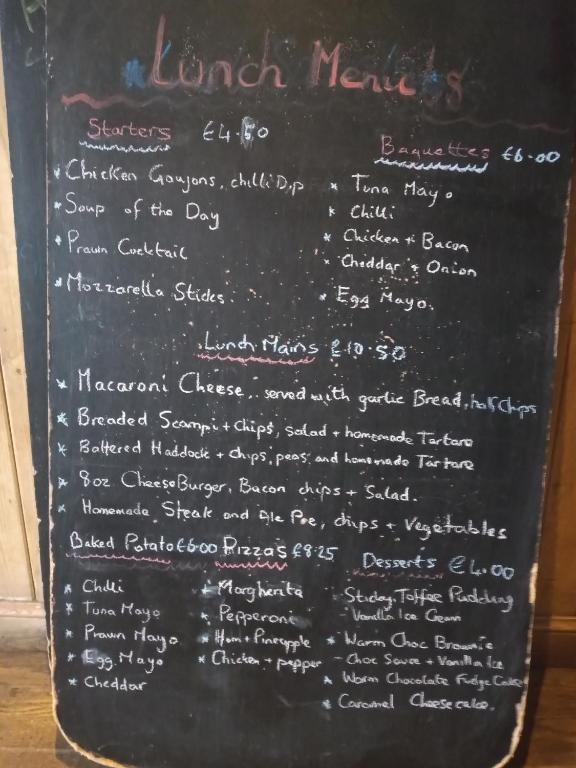 Lunch Menu's
Starters £4.50
* Chicken Goujons, chilli Dip
* Soup of the Day
* Prawn Cocktail
* Mozzarella Sticks.
Baguettes £6.00
* Tuna Mayo
* Chilli
* Chicken + Bacon
* Cheddar + Onion
* Egg Mayo.
Lunch Mains £10.50
* Macaroni Cheese, served with garlic Bread, half Chips
* Breaded Scampi + Chips, Salad + homemade Tartare
* Battered Haddock + chips, peas, and homemade Tartare
* 8oz Cheese Burger, Bacon chips + Salad.
* Homemade Steak and Ale Pie, chips + Vegetables
Baked Potato £6.00
* Chilli
* Tuna Mayo
* Prawn Mayo
* Egg Mayo
* Cheddar
Pizzas £8.25
* Margherita
* Pepperoni
* Ham + Pineapple
* Chicken + pepper
Desserts £4.00
- Sticky Toffee Pudding
Vanilla Ice Cream
* Warm Choc Brownie
- Choc Sauce + Vanilla Ice
* Warm Chocolate Fudge Cake
* Caramel Cheesecake.